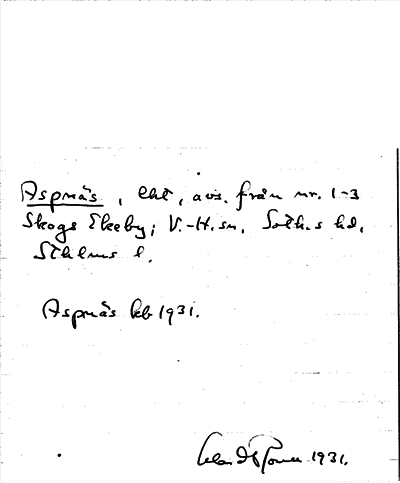 Aspnäs, lht, avs. från nr. 1-3
Skogs Ekeby, V.-H. sn, Soth.s hd,
Sthlms l.
Aspnäs kb 1931.
1931.